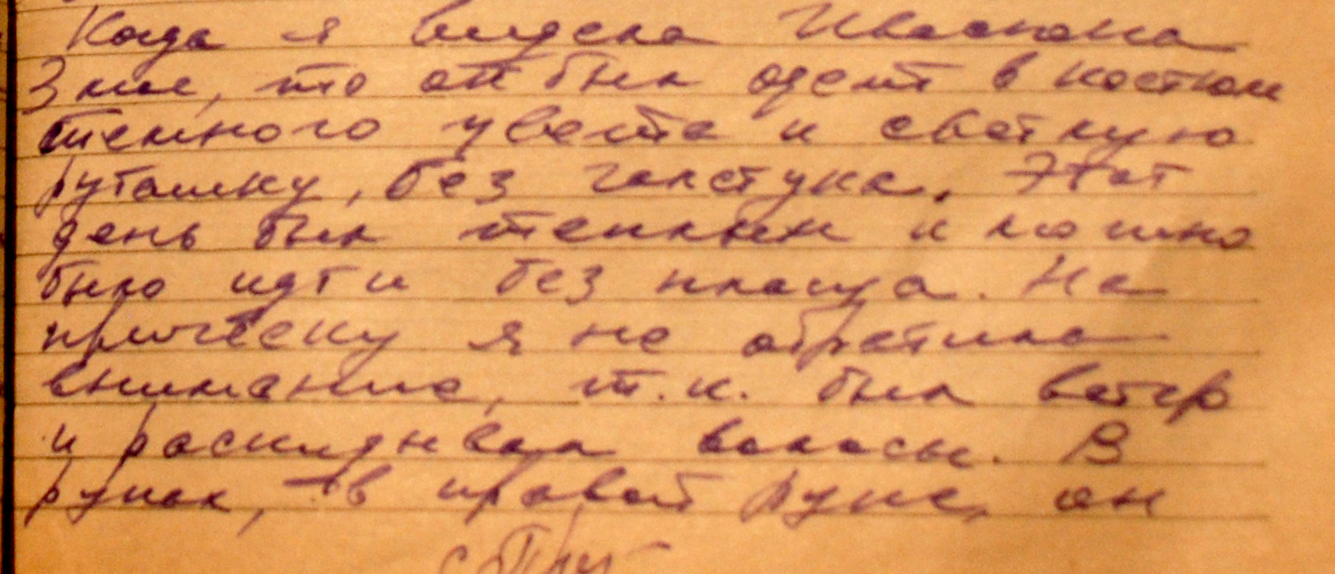 Когда я видела Ивасюка
Знаю, что он был одет в костюм
темного цвета и светлую
рубашку, без галстука. Этот
день был теплым и можно
было идти без плаща. На
прическу я не обратила
внимание, т.к. был ветер
и раскидывал волосы. В
руках, в правой руке, он